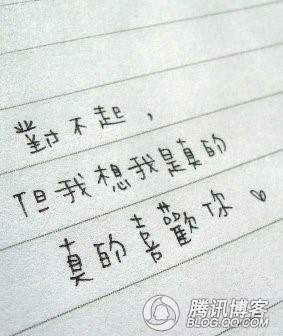 對不起，
但我想我是真的
真的喜歡你♡
腾讯博客
BLOG.QQ.COM